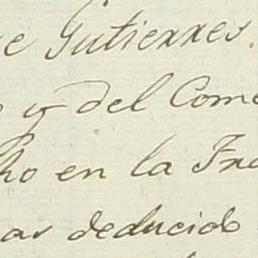 e Gutierres.
y del Come
ho en la Fra
as deducido